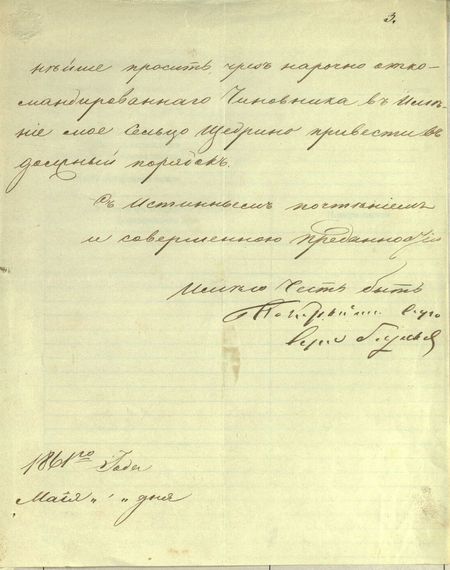 3.
нѣйше просить чрезъ нарочно отко-
мандированнаго Чиновника въ Имѣ-
ніе мое Сельцо Щедрино привести въ
должный порядокъ.
Съ Истиннымъ почтѣніемъ
и совершенною преданностію
Имѣю Честь быть
1861го Года
Маія „ „ дня